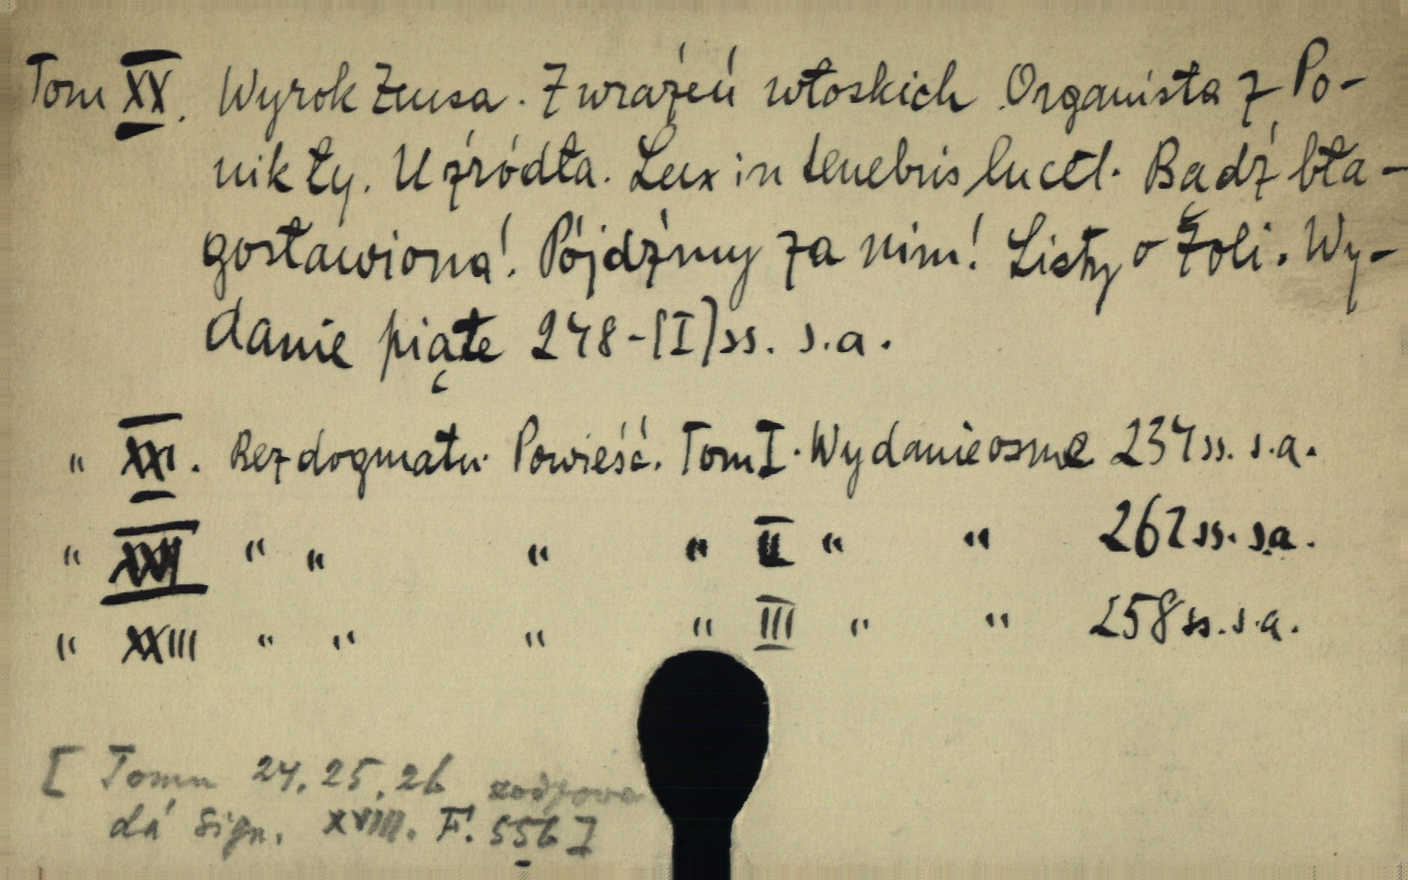 Tom XX. Wyrok Zeusa. Z wrażeń włoskich Organista z Po-
nikły. U źródła. Lux in tenebris lucet. Bądź bła-
gosławiona! Pójdźmy za nim! Listy o Zoli. Wy-
danie piąte 248-[I] ss. s.a.
" XXI. Bez dogmatu. Powieść. Tom I. Wydanie ósme 237 ss. s.a.
" XXII " " " " II " " 262 ss. s.a.
" XXIII " " " " III " " 258 ss. s.a.
[ Tomu 24, 25, 26 zodpoví-
dá sign. XVIII. F. 556 ]